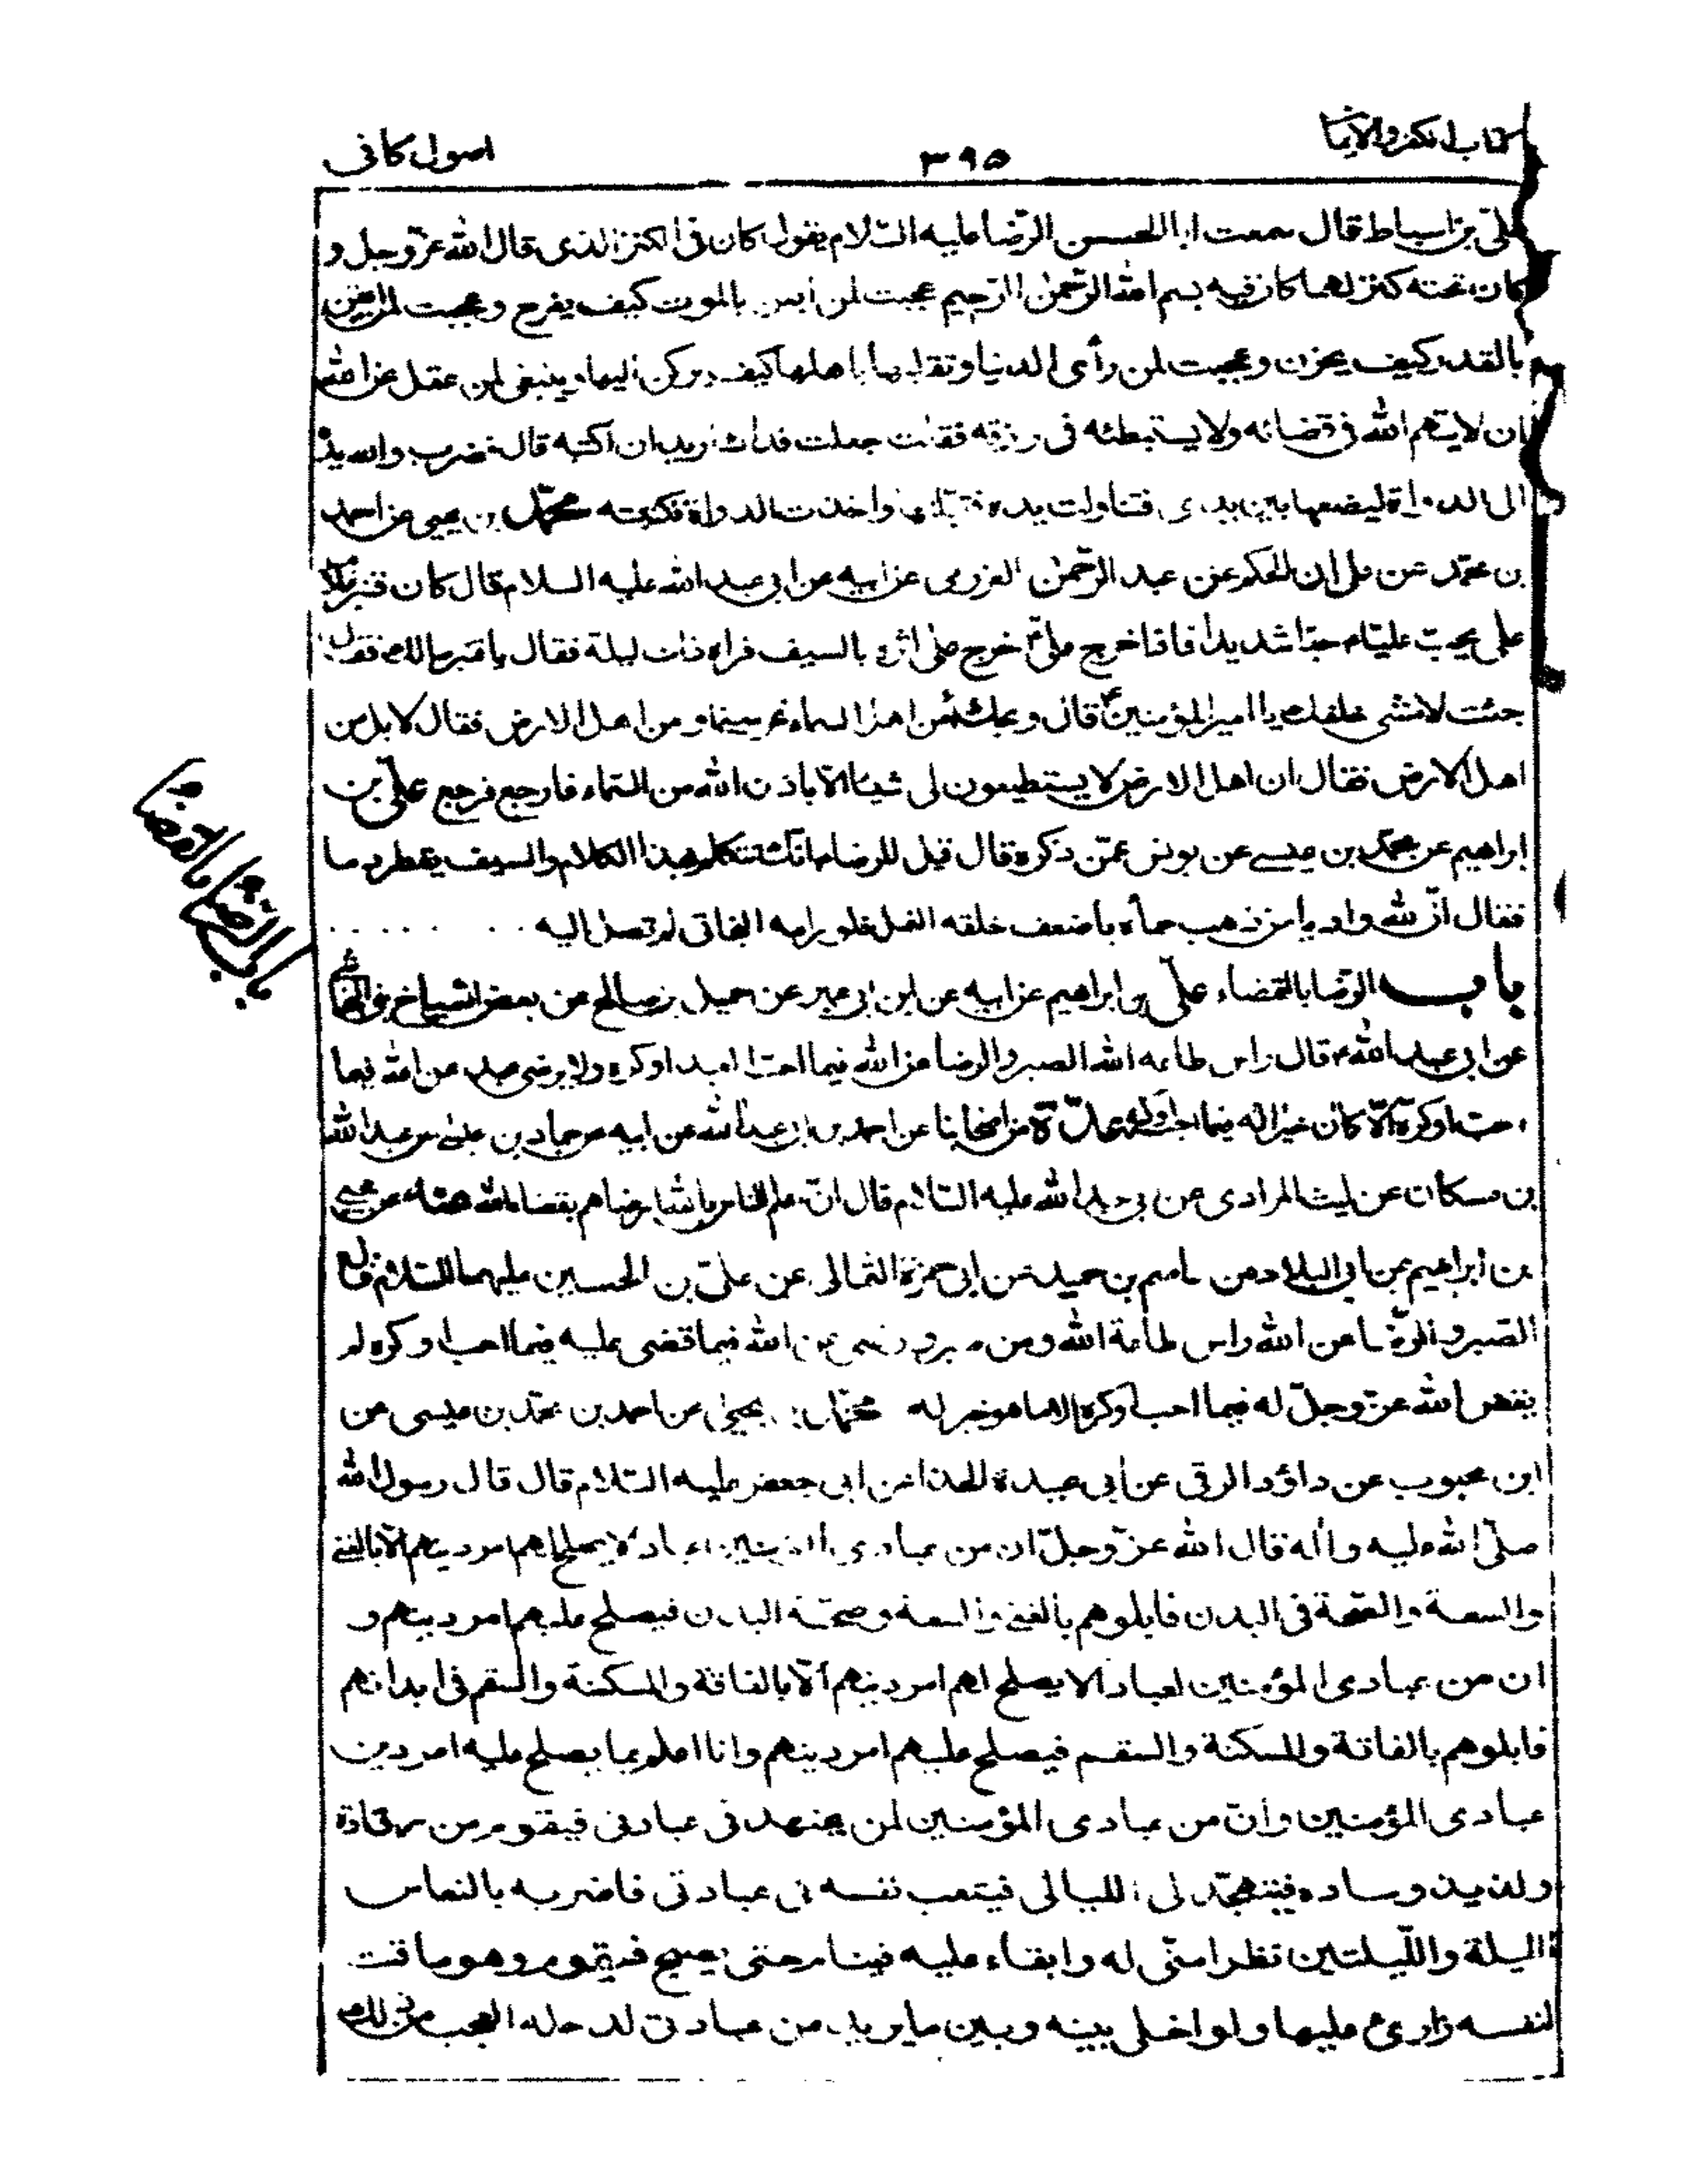 كتاب الكفر والايمان
٣٩٥
اصول كافى
على بن اسباط قال سمعت ابا الحسن الرّضا عليه السّلام يقول كان فى الكنز الذى قال الله عزّ وجل و
كان تحته كنز لهما كان فيه بسم الله الرّحمٰن الرّحيم عجبت لمن أيقن بالموت كيف يفرح وعجبت لمن ايقن
بالقدر كيف يحزن وعجبت لمن رأى الدنيا وتقلبها باهلها كيف يركن اليها وينبغى لمن عقل عن الله
ان لا يتهم الله فى قضائه ولا يستبطئه فى رزقه فقلت جعلت فداك اريد ان اكتبه قال فضرب والله يده
الى الدواة ليضعها بين يدى فتناولت يده فقبّلتها واخذت الدواة فكتبته محمّد بن يحيى عن احمد
بن محمّد عن على بن الحكم عن عبد الرّحمٰن العزرمى عن ابيه عن ابى عبد الله عليه السلام قال كان قنبر غلام
على يحبّ عليّاء حبّا شديدا فاذا خرج علىّ خرج على اثره بالسيف فراه ذات ليلة فقال يا قنبر مالك فقال
جئت لامشى خلفك يا امير المؤمنين قال ويحك أمن اهل السماء تحرسنى او من اهل الارض فقال لا بل من
اهل الارض فقال ان اهل الارض لا يستطيعون لى شيئا الّا باذن الله من السّماء فارجع فرجع علىّ بن
ابراهيم عن محمّد بن عيسى عن يونس عمّن ذكره قال قيل للرضاء انّك تتكلم بهذا الكلام والسيف يقطر دما
فقال انّ لله واديا من ذهب حماه باضعف خلقه النمل فلو رامه البخاتى لم تصل اليه . . . . . . .
باب الرّضا بالقضاء علىّ بن ابراهيم عن ابيه عن ابن ابى عمير عن جميل بن صالح عن بعض اشياخ بنى النجاشى
عن ابى عبد الله ء قال راس طاعة الله الصبر والرضا عن الله فيما احبّ العبد او كره ولا يرضى عبد عن الله فيما
احب او كره الّا كان خيرا له فيما احبّ او كره عدّة من اصحابنا عن احمد بن ابى عبد الله عن ابيه عن حماد بن عيسى عن عبد الله
بن مسكان عن ليث المرادى عن ابى عبد الله عليه السّلام قال انّ اعلم الناس بالله ارضاهم بقضاء الله عنه عن يحيى
بن ابراهيم بن ابى البلاد عن عاصم بن حميد عن ابى حمزة الثمالى عن علىّ بن الحسين عليهما السّلام قال
الصّبر والرّضا عن الله راس طاعة الله ومن صبر ورضى عن الله فيما قضى عليه فيما احب او كره لم
يقض الله عزّ وجلّ له فيما احب او كره الا ما هو خير له محمّد بن يحيىٰ عن احمد بن محمّد بن عيسى عن
ابن محبوب عن داؤد الرقى عن أبى عبيدة الحذاء عن ابى جعفر عليه السّلام قال قال رسول الله
صلّى الله عليه واله قال الله عزّ وجلّ ان من عبادى المؤمنين عبادا لا يصلح لهم امر دينهم الّا بالغنى
والسعة والصّحة فى البدن فابلوهم بالغنى والسعة وصحّة البدن فيصلح عليهم امر دينهم و
ان من عبادى المؤمنين لعبادا لا يصلح لهم امر دينهم الّا بالفاقة والمسكنة والسقم فى ابدانهم
فابلوهم بالفاقة والمسكنة والسقم فيصلح عليهم امر دينهم وانا اعلم بما يصلح عليه امر دين
عبادى المؤمنين وانّ من عبادى المؤمنين لمن يجتهد فى عبادتى فيقوم من رقاده
ولذيذ وساده فيتهجّد لى الليالى فيتعب نفسه فى عبادتى فاضربه بالنعاس
الليلة واللّيلتين نظرا منّى له وابقاء عليه فينام حتى يصبح فيقوم وهو ماقت
لنفسه زارئ عليها ولو اخلى بينه وبين ما يريد من عبادتى لدخله العجب من ذلك
باب الرضا بالقضاء